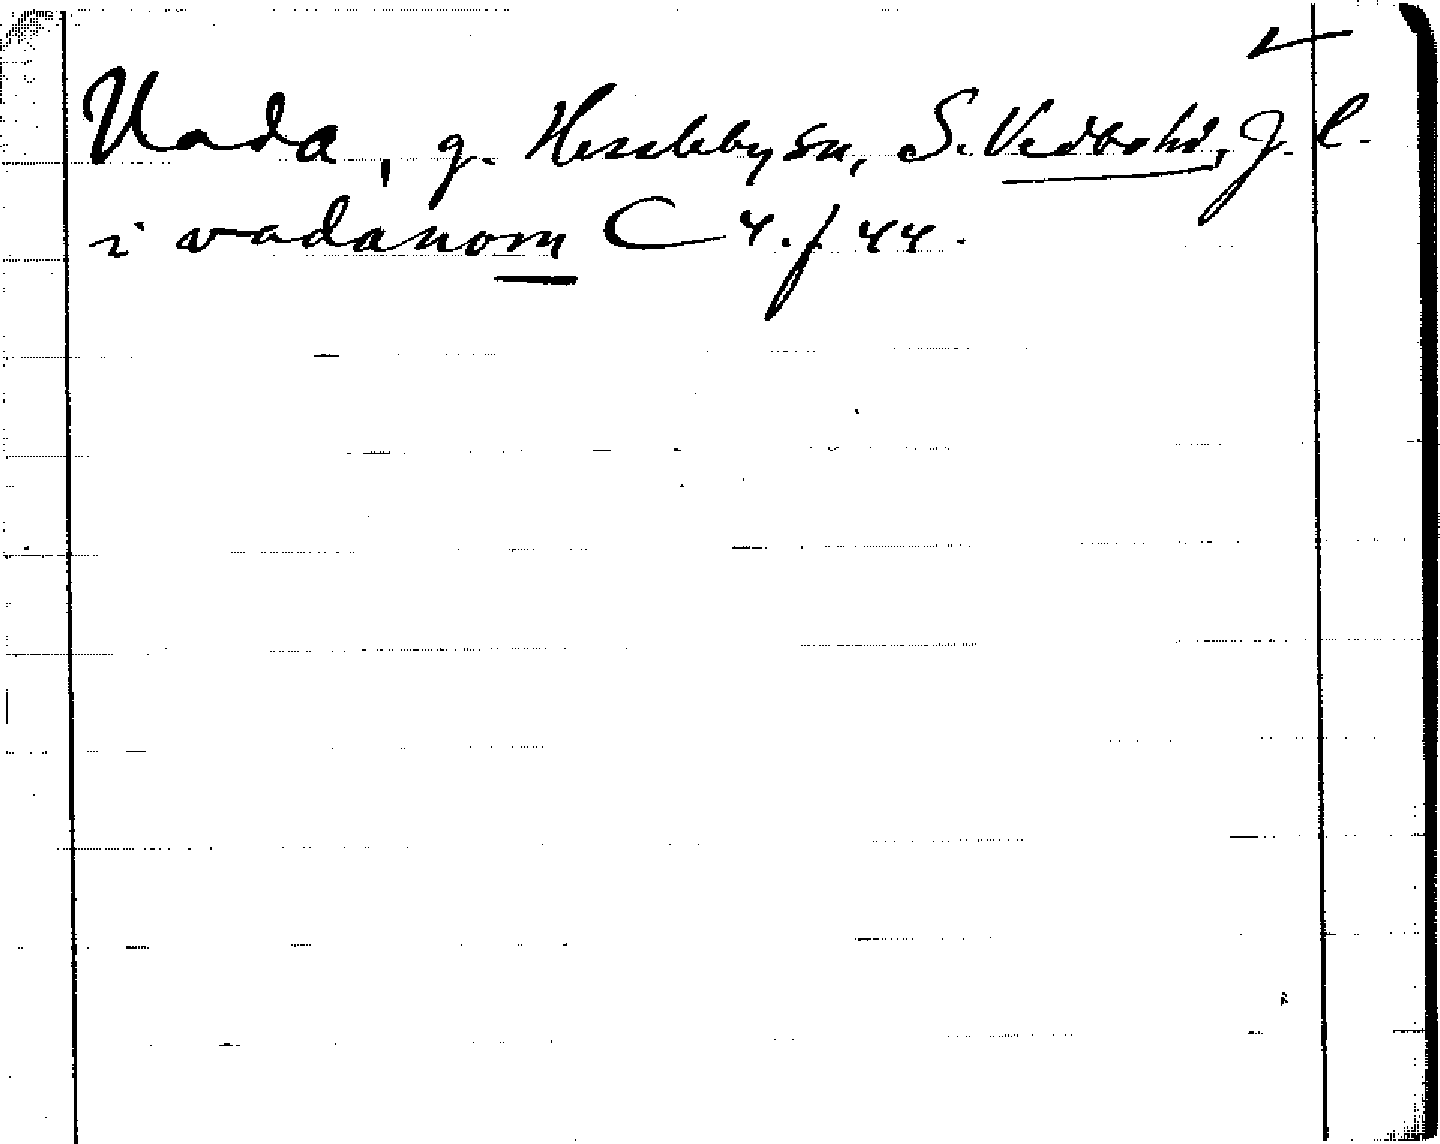 Vada, g. Hessleby sn, S. Vedbohd, J. l.
i vadanom C 4. f 44.